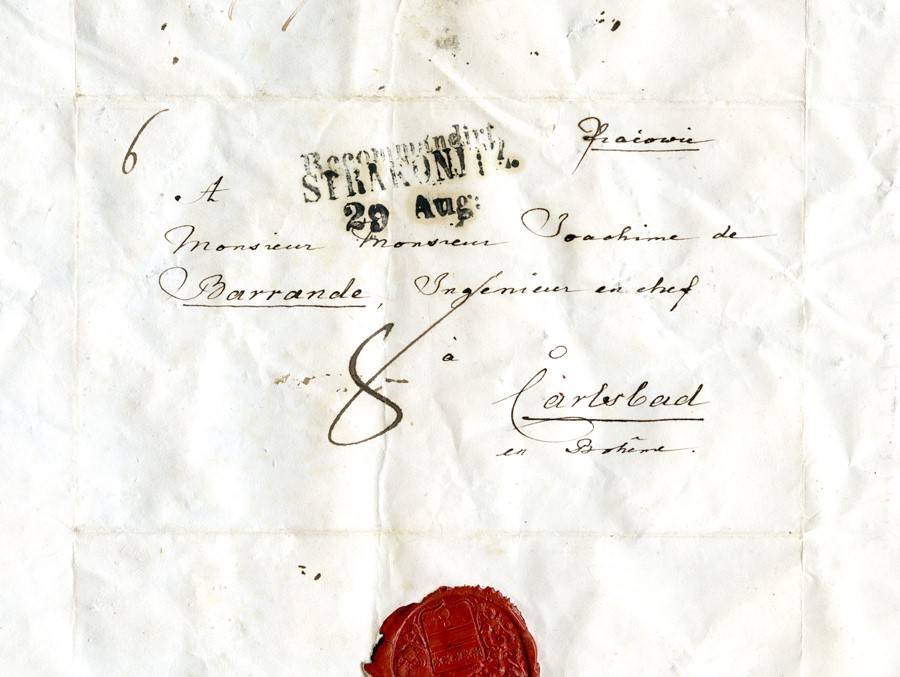 6
Recommandirt
STRAKONITZ.
29 Aug:
A
Monsieur Monsieur Joachime de
Barrande, Ingénieur en chef
8
à
Carlsbad
en Bohême.